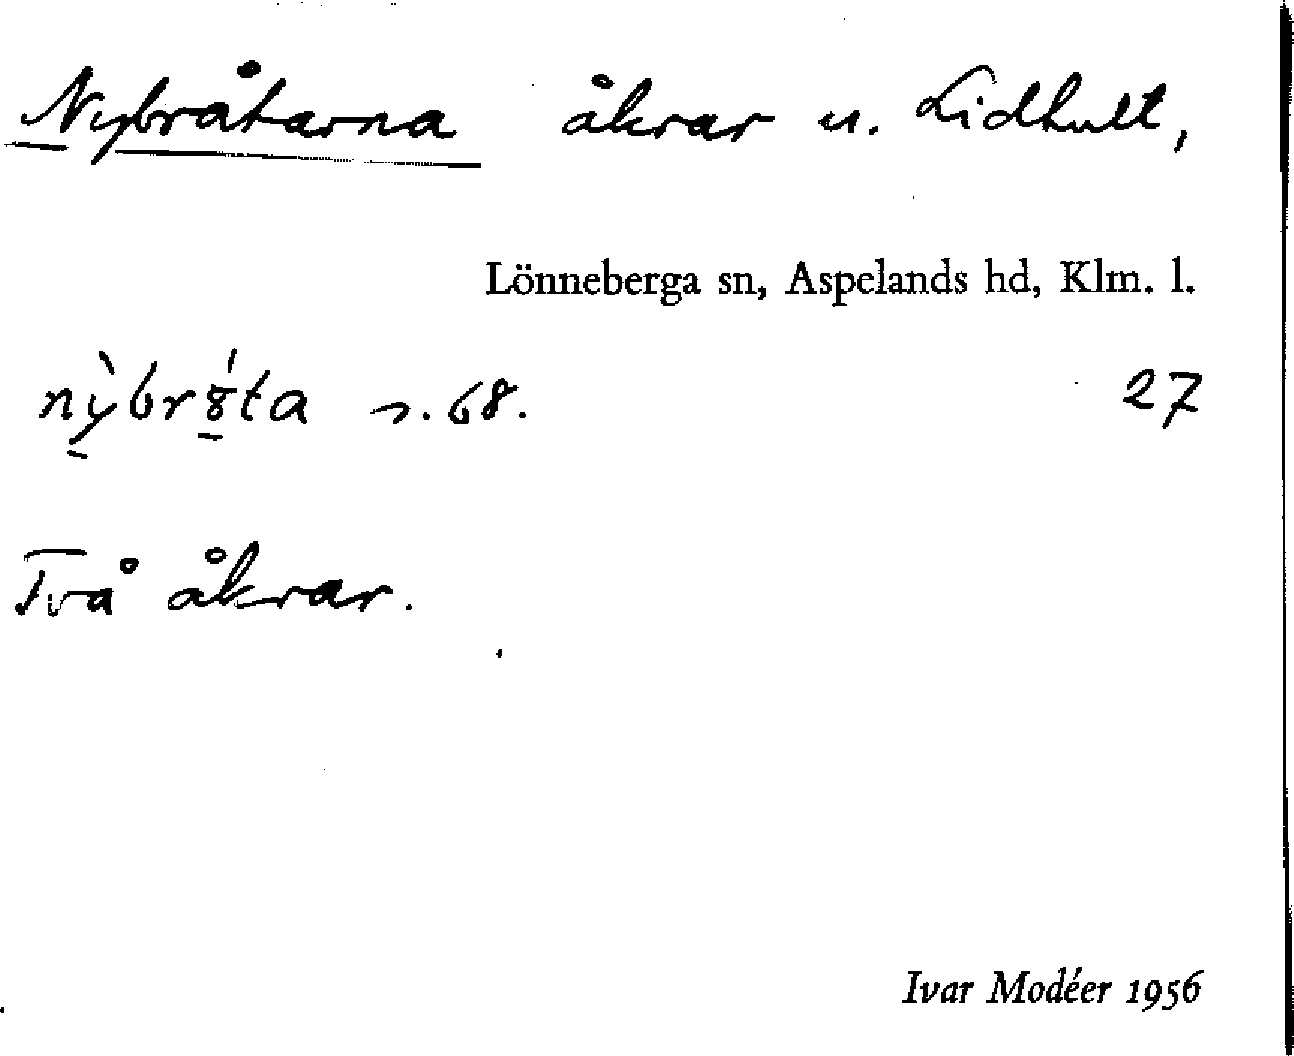 Nybråtarna åkrar u. Lidhult,
Lönneberga sn, Aspelands hd, Klm. l.
nỳ̠br8̠́ta s. 68. 27
Två åkrar.
Ivar Modéer 1956